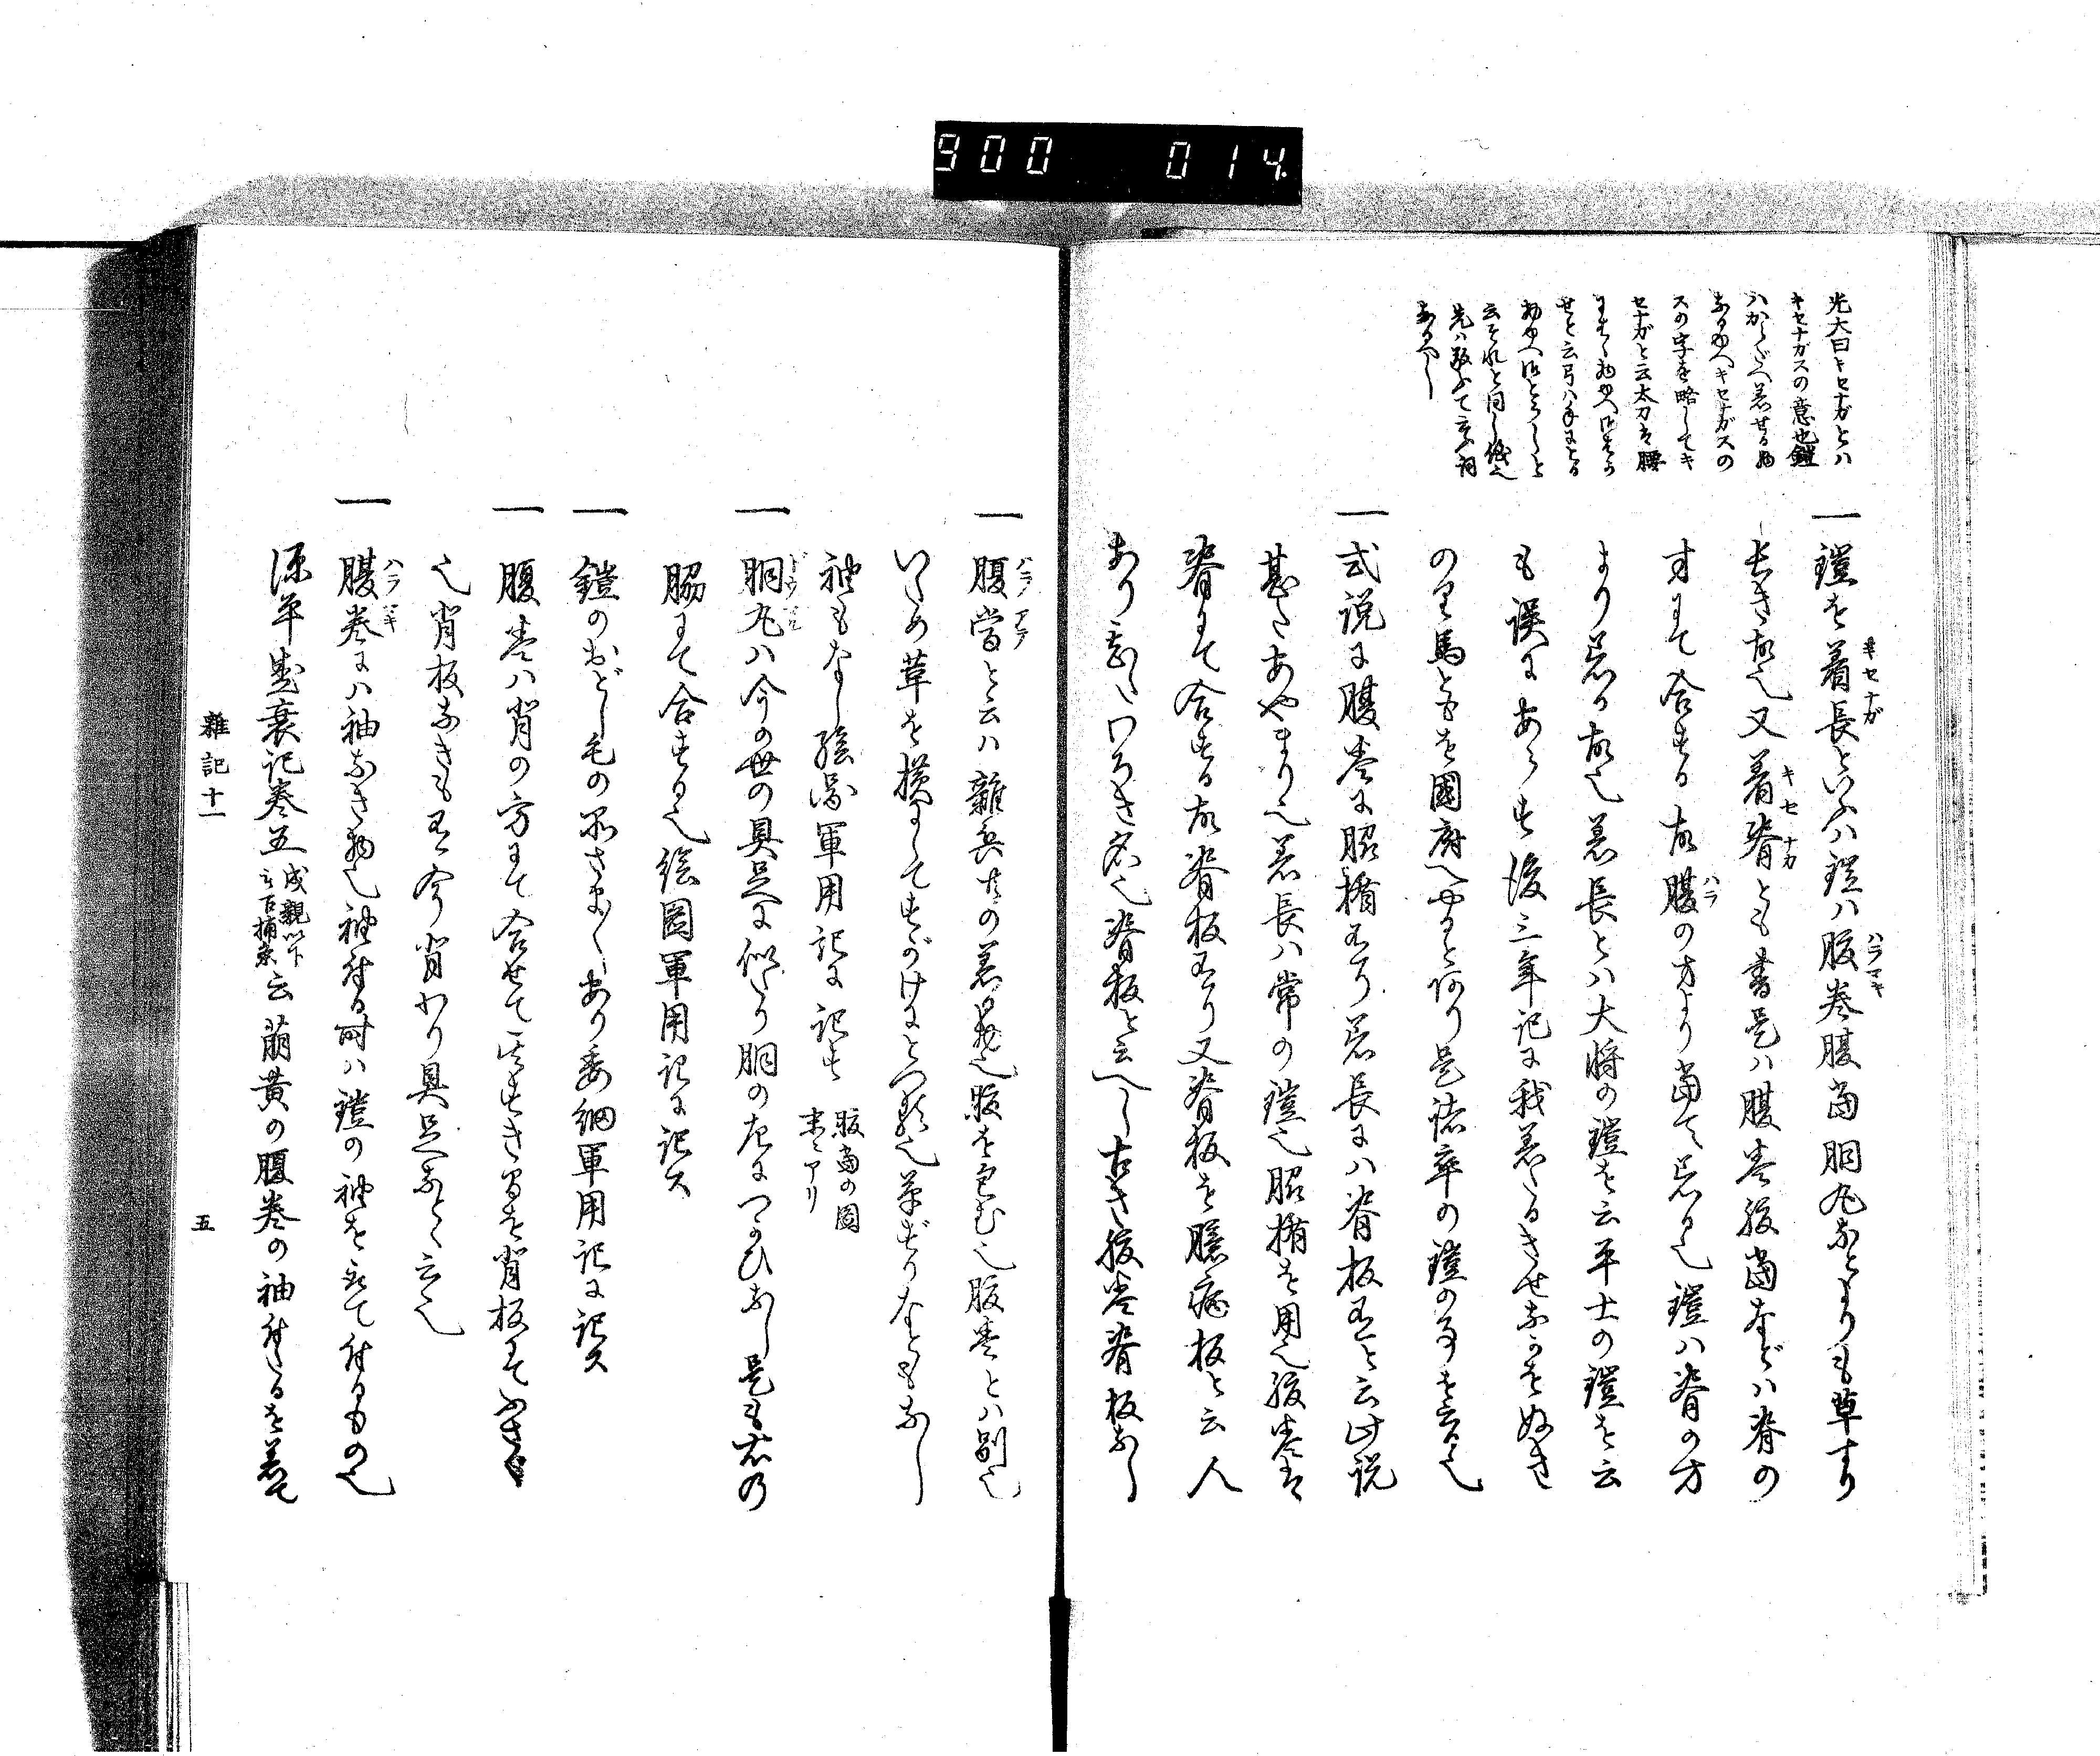 900 014
光大曰キセナガとハ
キセナガスの意也鎧
ハからだへ着せる物
なるゆへキセナガスの
スの字を略してキ
セナガと云太刀は腰
にはく物ゆへはかせ
せと云弓ハ手にとる
物ゆへ御とらしと
云それと同し儀也
先ハ敬て云詞
なるへし
一鎧を着長といふハ鎧ハ腹巻腹當胴丸などよりも草ずり
長き故也又着脊とも書是ハ腹巻腹當などハ脊の
方にて合する故腹の方より當て着る也鎧ハ脊の方
より着る故也着長とハ大将の鎧を云平士の鎧を云
も誤にあらす後三年記に我着たるきせながをぬき
の里馬ともを國府へやると有り是諸卒の鎧の事を云也
一或説に腹巻に脇楯有り着長にハ脊板有と云此説
甚たあやまり也着長ハ常の鎧也脇楯を用也腹巻は
脊にて合する故脊板有り又脊板を臆病板と云人
あり云われわろき名也脊板と云へし古き腹巻脊板なし
一腹當と云ハ雑兵共の着る物也腹を包む也腹巻とハ別也
いため革を横にしてすがけにとつる也草ずりなどもなし
袖もなし繪圖軍用記に記す 腹當の圖末ニアリ
一胴丸ハ今の世の具足に似たり胴の左につかひなし是も右の
脇にて合する也繪圖軍用記に記ス
一鎧のおどし毛の品さま〲あり委細軍用記に記ス
一腹巻ハ背の方にて合せて其すき間を背板にてふさく
也背板なきも有今背わり具足なと云也
一腹巻にハ袖なき物也袖付る時ハ鎧の袖を取て付るもの也
源平盛衰記巻五成親以下被召捕条云萌黄の腹巻の袖付たるを着て
雜記十一
五